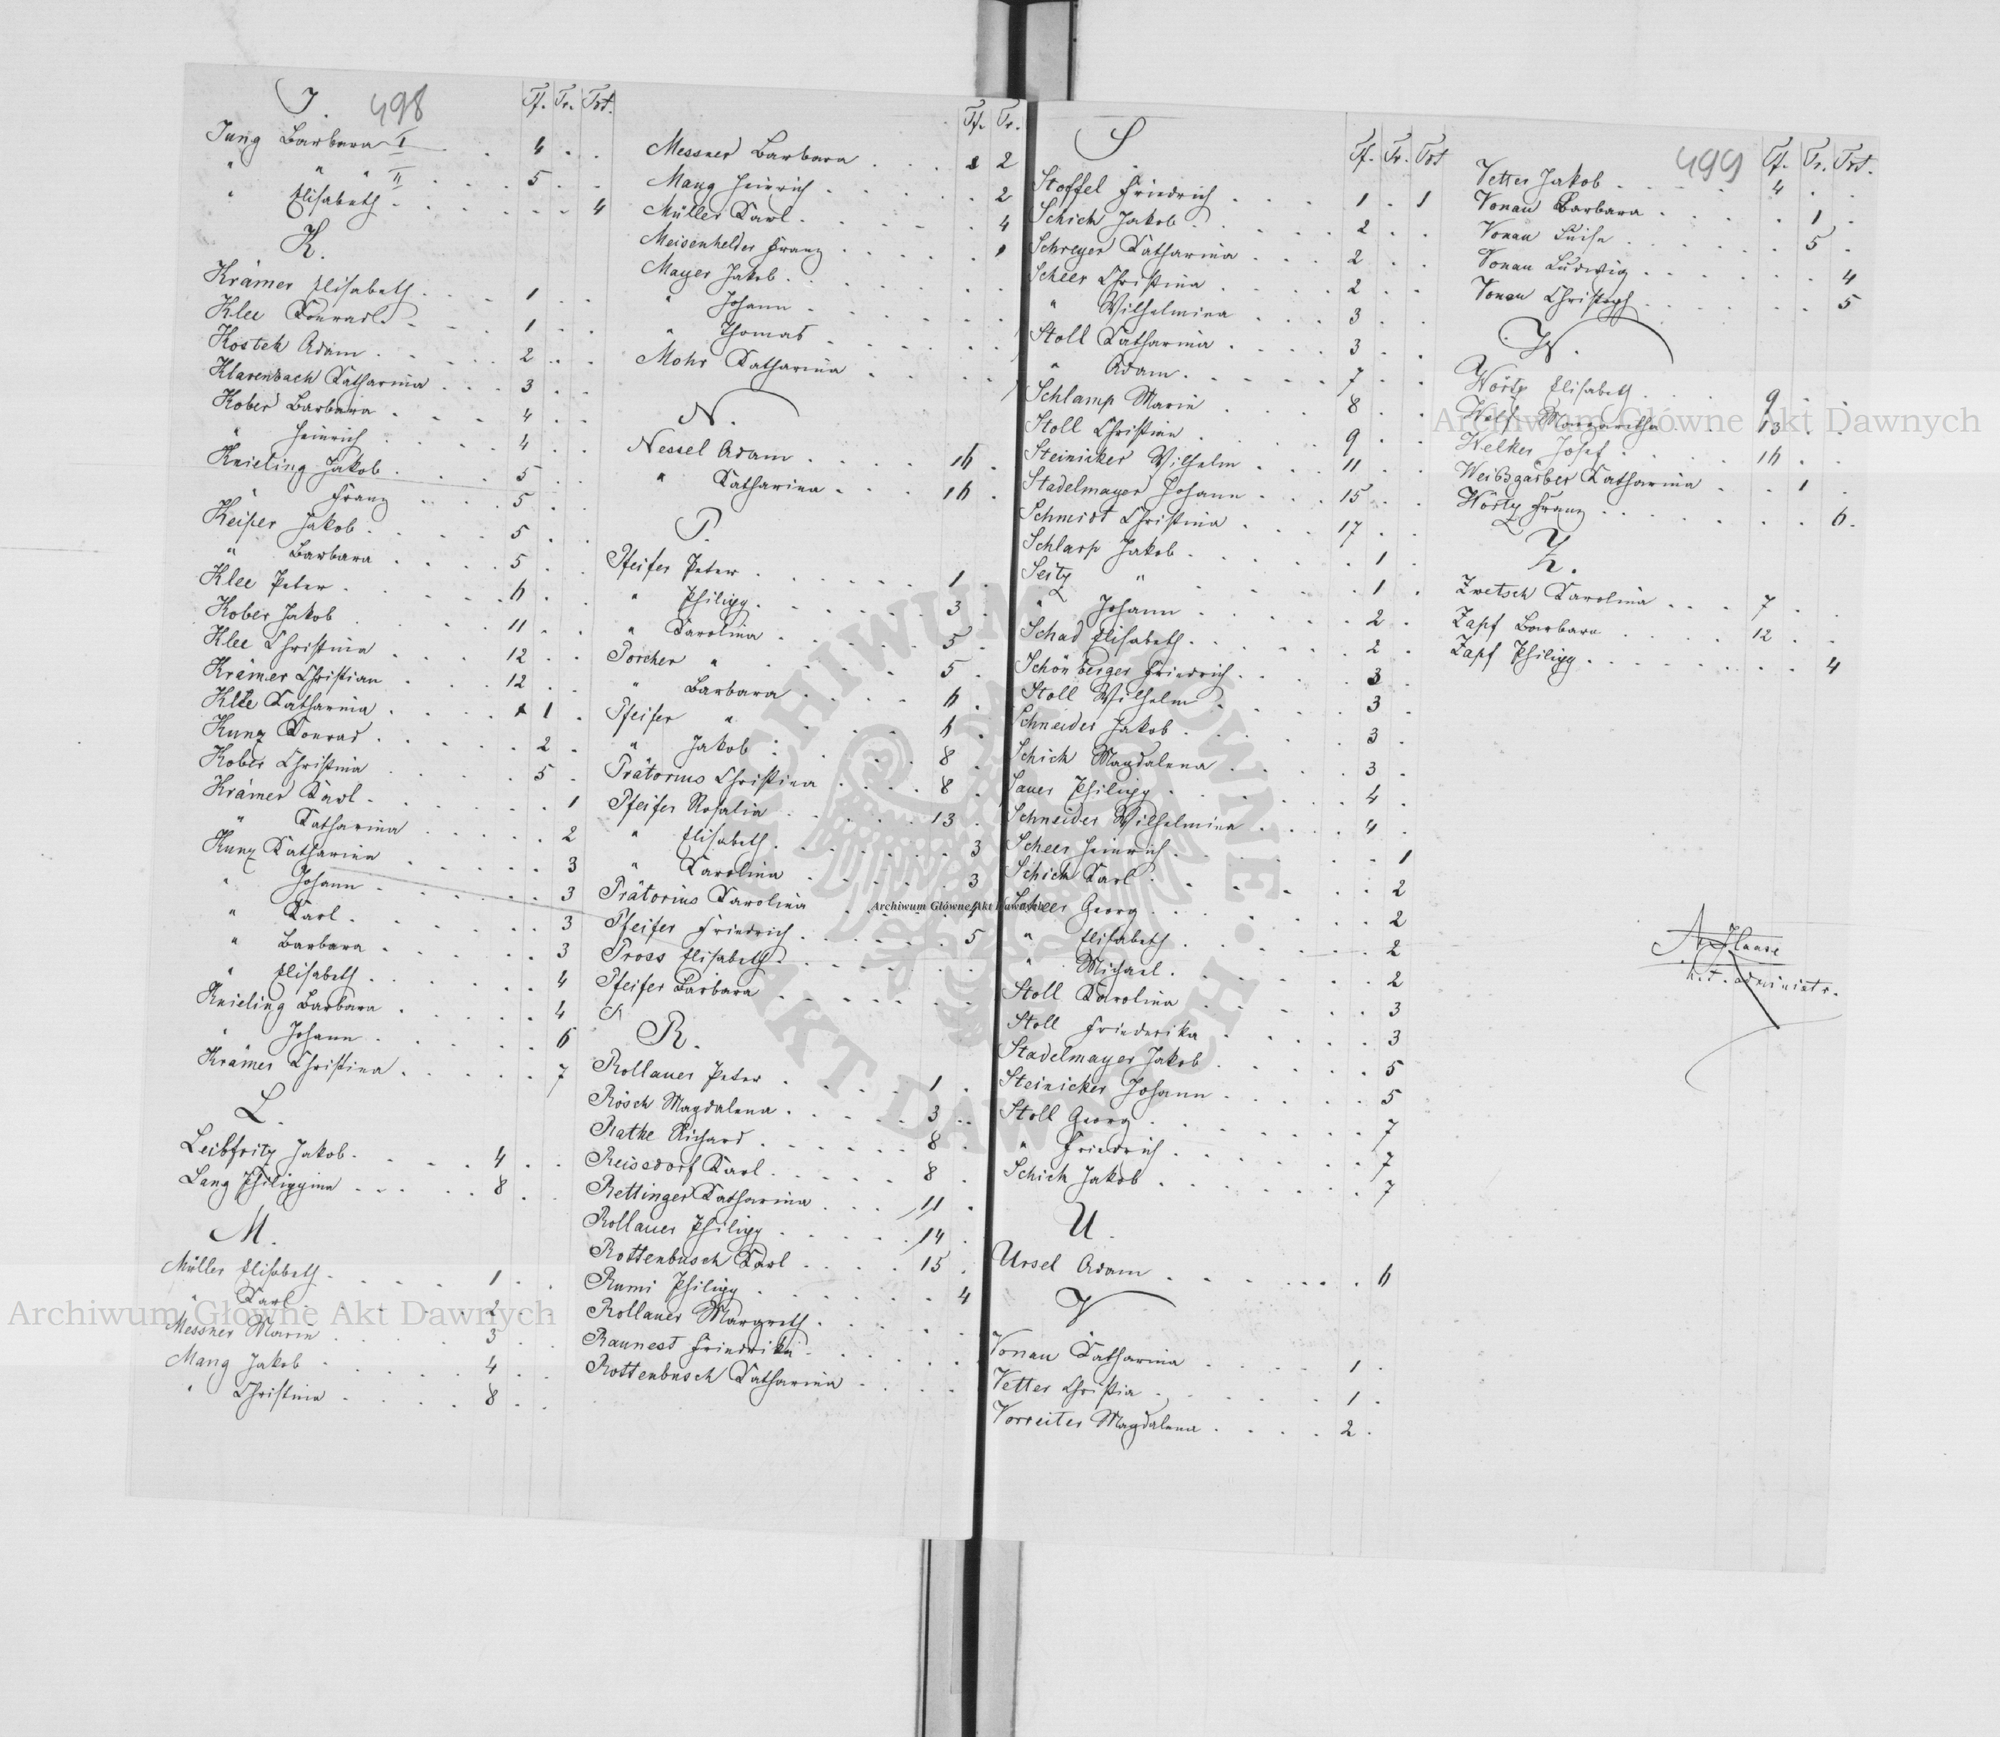 J. 498
Tf. Tr. Trt.
Jung Barbara I . . 4 . .
" " " II . . 5 . .
" Elisabeth . . . . . . 4
K.
Krämer Elisabeth . . . 1 . .
Klee Konrad . . . 1 . .
Kostek Adam . . . 2 . .
Klarenbach Katharina . . . 3 . .
Kober Barbara . . . 4 . .
" Heinrich . . . 4 . .
Knieling Jakob . . . 5 . .
" Franz . . . 5 . .
Keiper Jakob . . . 5 . .
" Barbara . . . 5 . .
Klee Peter . . . 6 . .
Kober Jakob . . . 11 . .
Klee Christina . . . 12 . .
Krämer Christian . . . 12 . .
Klee Katharina . . . 1 .
Kunz Konrad . . . 2 .
Kober Christina . . . 5 .
Krämer Karl . . . 1
" Katharina . . . 2
Kunz Katharina . . . 3
" Johann . . . 3
" Karl . . . 3
" Barbara . . . 3
" Elisabeth . . . 4
Knieling Barbara . . . 4
" Johann . . . 6
Krämer Christina . . . 7
L.
Leibfritz Jakob . . . 4 . .
Lang Philippina . . . 8 . .
M.
Müller Elisabeth . . . 1 . .
" Karl . . . 2 . .
Messner Marie . . . 3 . .
Mang Jakob . . . 4 . .
" Christina . . . 8 . .
Tf. Tr.
Messner Barbara . . . 2
Mang Heinrich . . . 2
Müller Karl . . . 4
Meisenhelder Franz . . .
Mayer Jakob . . .
" Johann . . .
" Thomas . . .
Mohr Katharina . . .
N.
Nessel Adam . . . 16 .
" Katharina . . . 16 .
P.
Pfeifer Peter . . . 1 .
" Philipp . . . 3 .
" Karolina . . . 5 .
Porcher " . . . 5 .
" Barbara . . . 6 .
Pfeifer " . . . 6 .
" Jakob . . . 8 .
Prätorius Christina . . . 8 .
Pfeifer Rosalia . . . 13 .
" Elisabeth . . . 3
" Karolina . . . 3
Prätorius Karolina . . .
Pfeifer Friedrich . . . 5
Pross Elisabeth . . .
Pfeifer Barbara . . .
R.
Rollauer Peter . . . 1 .
Rösch Magdalena . . . 3 . .
Rathe Richard . . . 8 .
Reissdorf Karl . . . 8 .
Rettinger Katharina . . . 11 .
Rollauer Philipp . . . 14 .
Rottenbusch Karl . . . 15 .
Rumi Philipp . . . 4
Rollauer Margreth . . .
Raunest Friedrika . . .
Rottenbusch Katharina . . .
S
Tf. Tr. Trt
Stoffel Friedrich . . . 1 . 1
Schick Jakob . . . 2 . .
Schreyer Katharina . . . 2 . .
Scheer Christina . . . 2 . .
" Wilhelmina . . . 3 . .
Stoll Katharina . . . 3 . .
" Adam . . . 7 . .
Schlamp Marie . . . 8 . .
Stoll Christian . . . 9 . .
Steinicker Wilhelm . . . 11 . .
Stadelmayer Johann . . . 15 . .
Schmidt Christina . . . 17 . .
Schlarp Jakob . . . 1 .
Seitz " . . . 1 .
" Johann . . . 2 .
Schad Elisabeth . . . 2 .
Schönberger Friedrich . . . 3 .
Stoll Wilhelm . . . 3 .
Schneider Jakob . . . 3 .
Schick Magdalena . . . 3 .
Sauer Philipp . . . 4 .
Schneider Wilhelmina . . . 4 .
Scheer Heinrich . . . 1
Schick Karl . . . 2
Scheer Georg . . . 2
" Elisabeth . . . 2
" Michael . . . 2
Stoll Karolina . . . 3
Stoll Friederika . . . 3
Stadelmayer Jakob . . . 5
Steinicker Johann . . . 5
Stoll Georg . . . 7
" Friedrich . . . 7
Schick Jakob . . . 7
U.
Ursel Adam . . . 6
V
Vonau Katharina . . . 1 .
Vetter Christia . . . 1 .
Vorreiter Magdalena . . . 2 .
499
Tf. Tr. Trt.
Vetter Jakob . . . 4 . .
Vonau Barbara . . . 1 .
Vonau Luise . . . 5 .
Vonau Ludwig . . . 4
Vonau Christoph . . . 5
W.
Wörtz Elisabeth . . . 9 . .
Welf Margaretha . . 13 . .
Welker Josef . . . 16 . .
Weißgarber Katharina . . 1 .
Wörtz Franz . . . 6.
Z.
Zwetsch Karolina . . . 7 . .
Zapf Barbara . . . 12 . .
Zapf Philipp . . . 4
administr.
Archiwum Główne Akt Dawnych
Archiwum Główne Akt Dawnych
Archiwum Główne Akt Dawnych
ARCHIWUM GŁÓWNE • AKT DAWNYCH